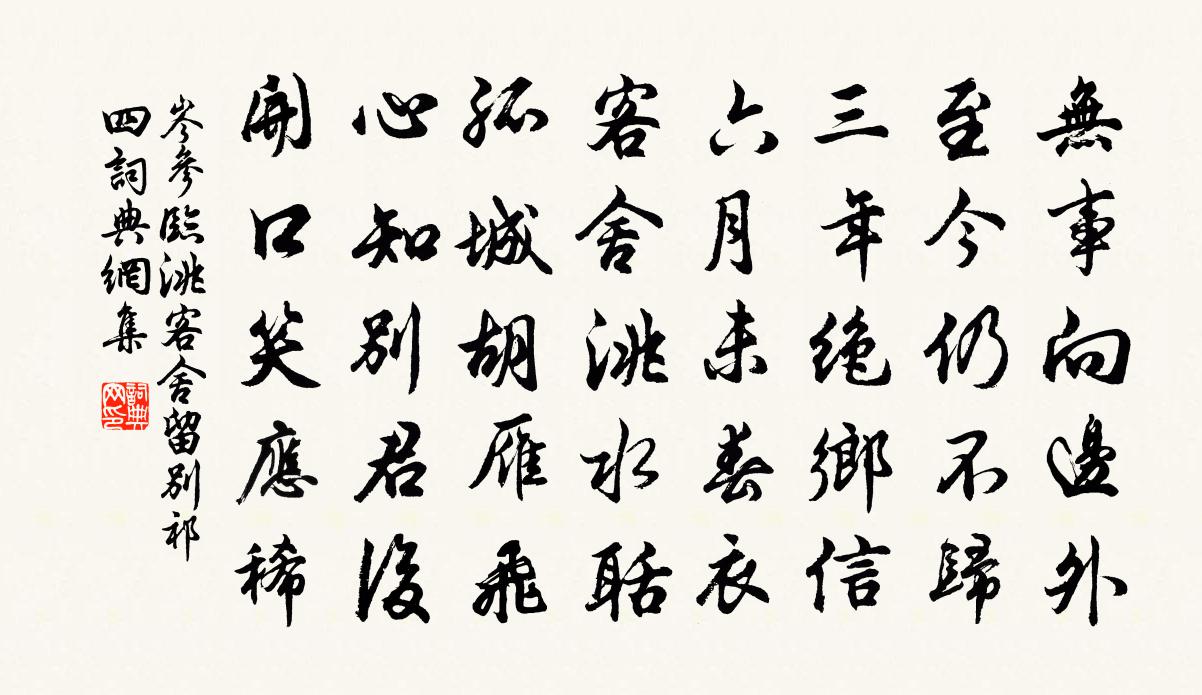 無事向邊外
至今仍不歸
三年絶鄉信
六月未春衣
客舍洮水聒
孤城胡雁飛
心知別君後
開口笑應稀
岑參臨洮客舍留別祁
四詞典網集
詞典
网印